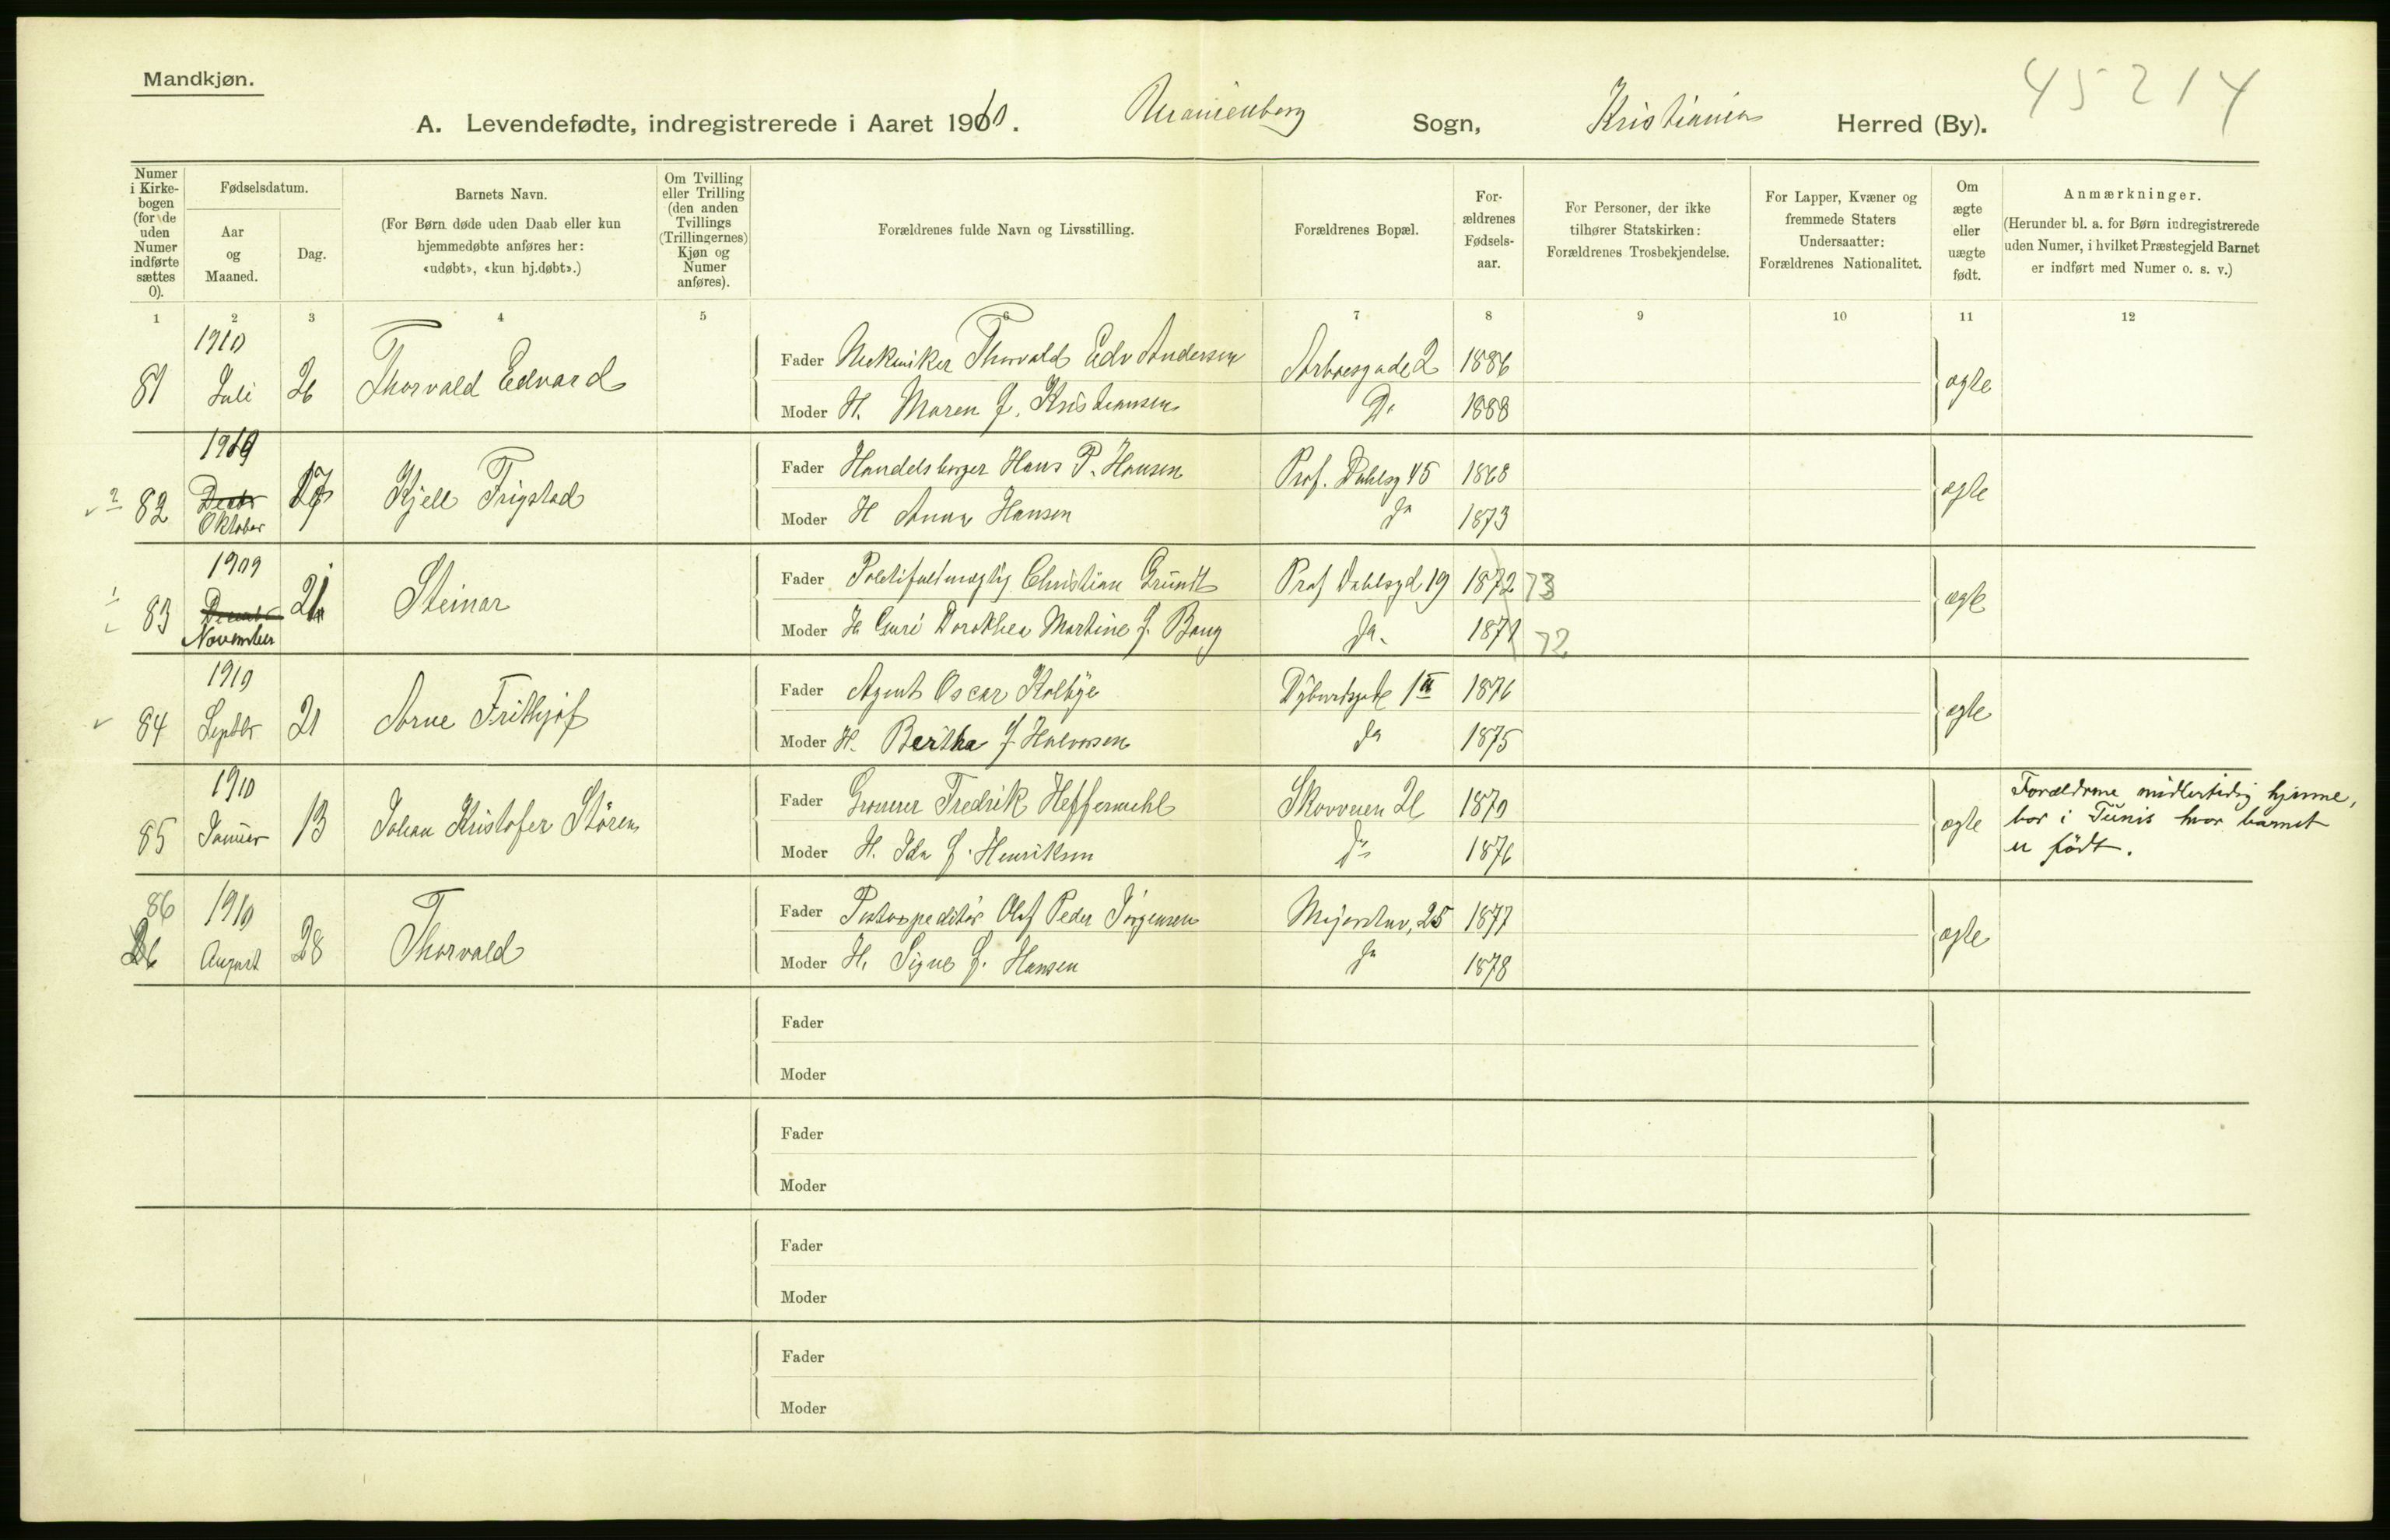 Mandkjøn.
45214
A. Levendefødte, indregistrerede i Aaret 1910. Uranienborg Sogn, Kristiania Herred (By).
Numer i Kirkebogen (for de uden Numer indførte sættes 0).
Fødselsdatum.
Aar og Maaned.
Dag.
Barnets Navn.
(For Børn døde uden Daab eller kun hjemmedøbte anføres her: «udøbt», «kun hj.døbt».)
Om Tvilling eller Trilling (den anden Tvillings (Trillingernes) Kjøn og Numer anføres).
Forældrenes fulde Navn og Livsstilling.
Forældrenes Bopæl.
Forældrenes Fødselsaar.
For Personer, der ikke tilhører Statskirken: Forældrenes Trosbekjendelse.
For Lapper, Kvæner og fremmede Staters Undersaatter: Forældrenes Nationalitet.
Om ægte eller uægte født.
Anmærkninger.
(Herunder bl. a. for Børn indregistrerede uden Numer, i hvilket Præstegjeld Barnet er indført med Numer o. s. v.)
1 2 3 4 5 6 7 8 9 10 11 12
1910
81 Juli 26 Thorvald Edvard
Fader Mekaniker Thorvald Edv Andersen 2 1886
ægte
Moder H. Maren f. Kristiansen Do 1888
1909
82 Decbr Oktober 17 Kjell Frigstad
Fader Handelsborger Hans P. Hansen Prof. Dahlsg 45 1868
ægte
Moder H Anna Hansen Do 1873
1909
83 Decbr November 21 Steinar
Fader Politifuldmægtig Christian Grundt Prof Dahlsgd 19 1872 73
ægte
Moder H Guri Dorothea Martine f. Bang Do. 1871 72
1910
84 Septbr 21 Arne Frithjof
Fader Agent Oscar Kolbye 1 II 1876
ægte
Moder H. Bertha f Halvorsen Do 1875
1910
85 Januar 13 Johan Kristofer Stören
Fader Fredrik Heffermehl Skovveien 1870
ægte
Moder H. Ida f. Henriksen Do 1876
Forældrene midlertidig hjemme,
bor i Tunis hvor barnet
er født.
86 1910
26 August 28 Thorvald
Fader Postexpeditør Olaf Peder Jörgensen 25 1877
ægte
Moder H. Signe f. Hansen Do 1878
Fader
Moder
Fader
Moder
Fader
Moder
Fader
Moder